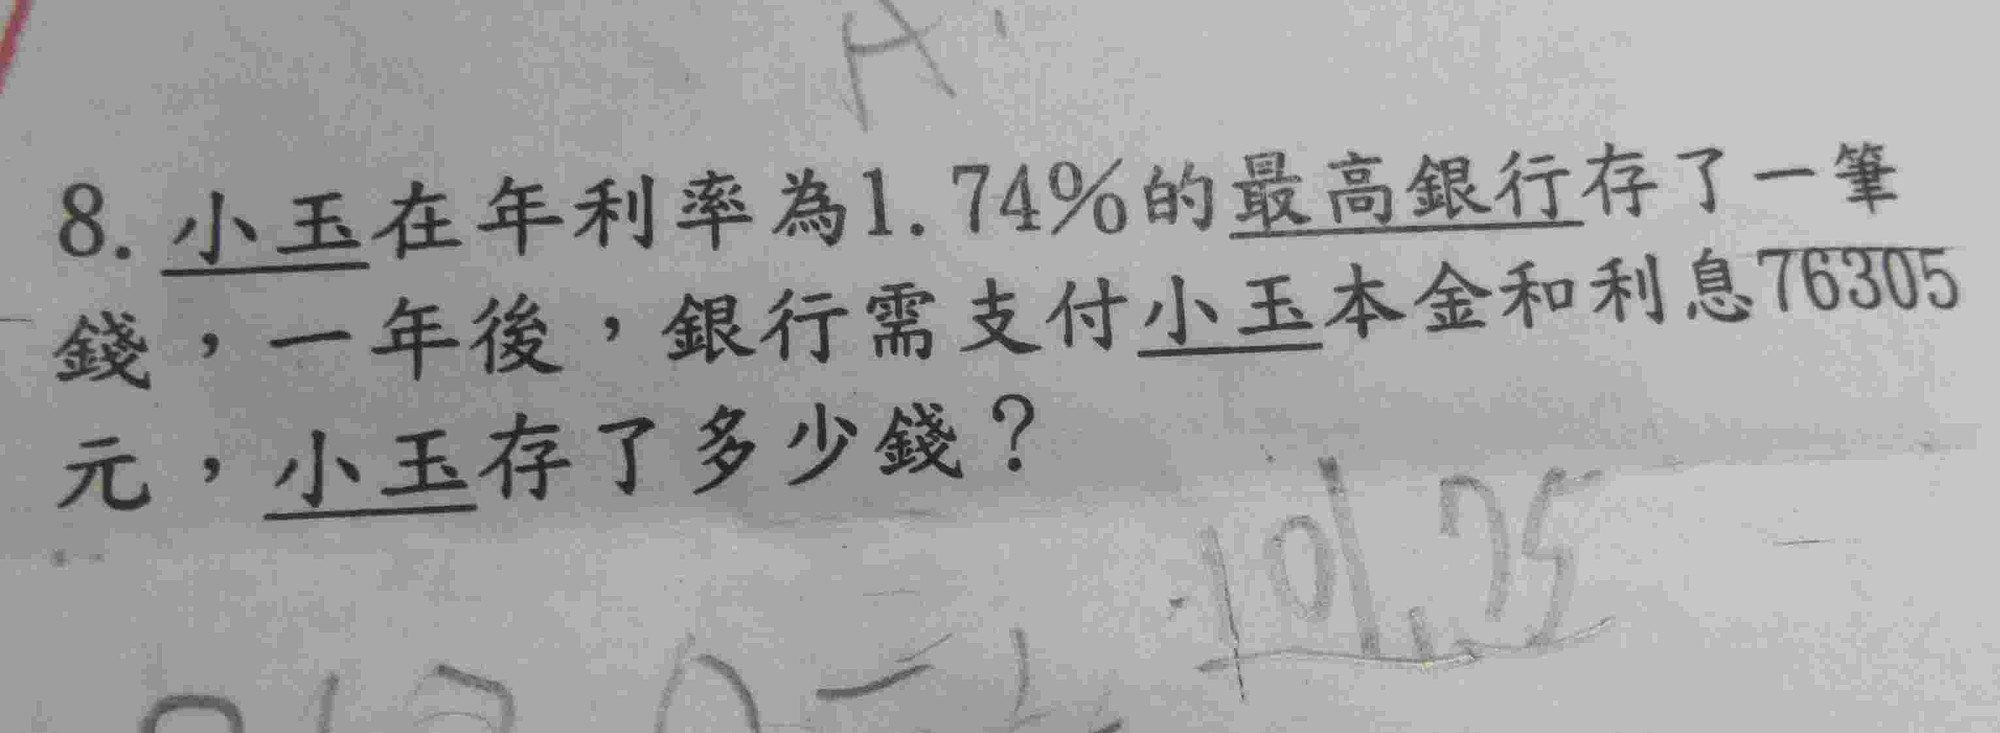 8. 小玉在年利率為1.74%的最高銀行存了一筆
錢，一年後，銀行需支付小玉本金和利息76305
元，小玉存了多少錢？
101.75